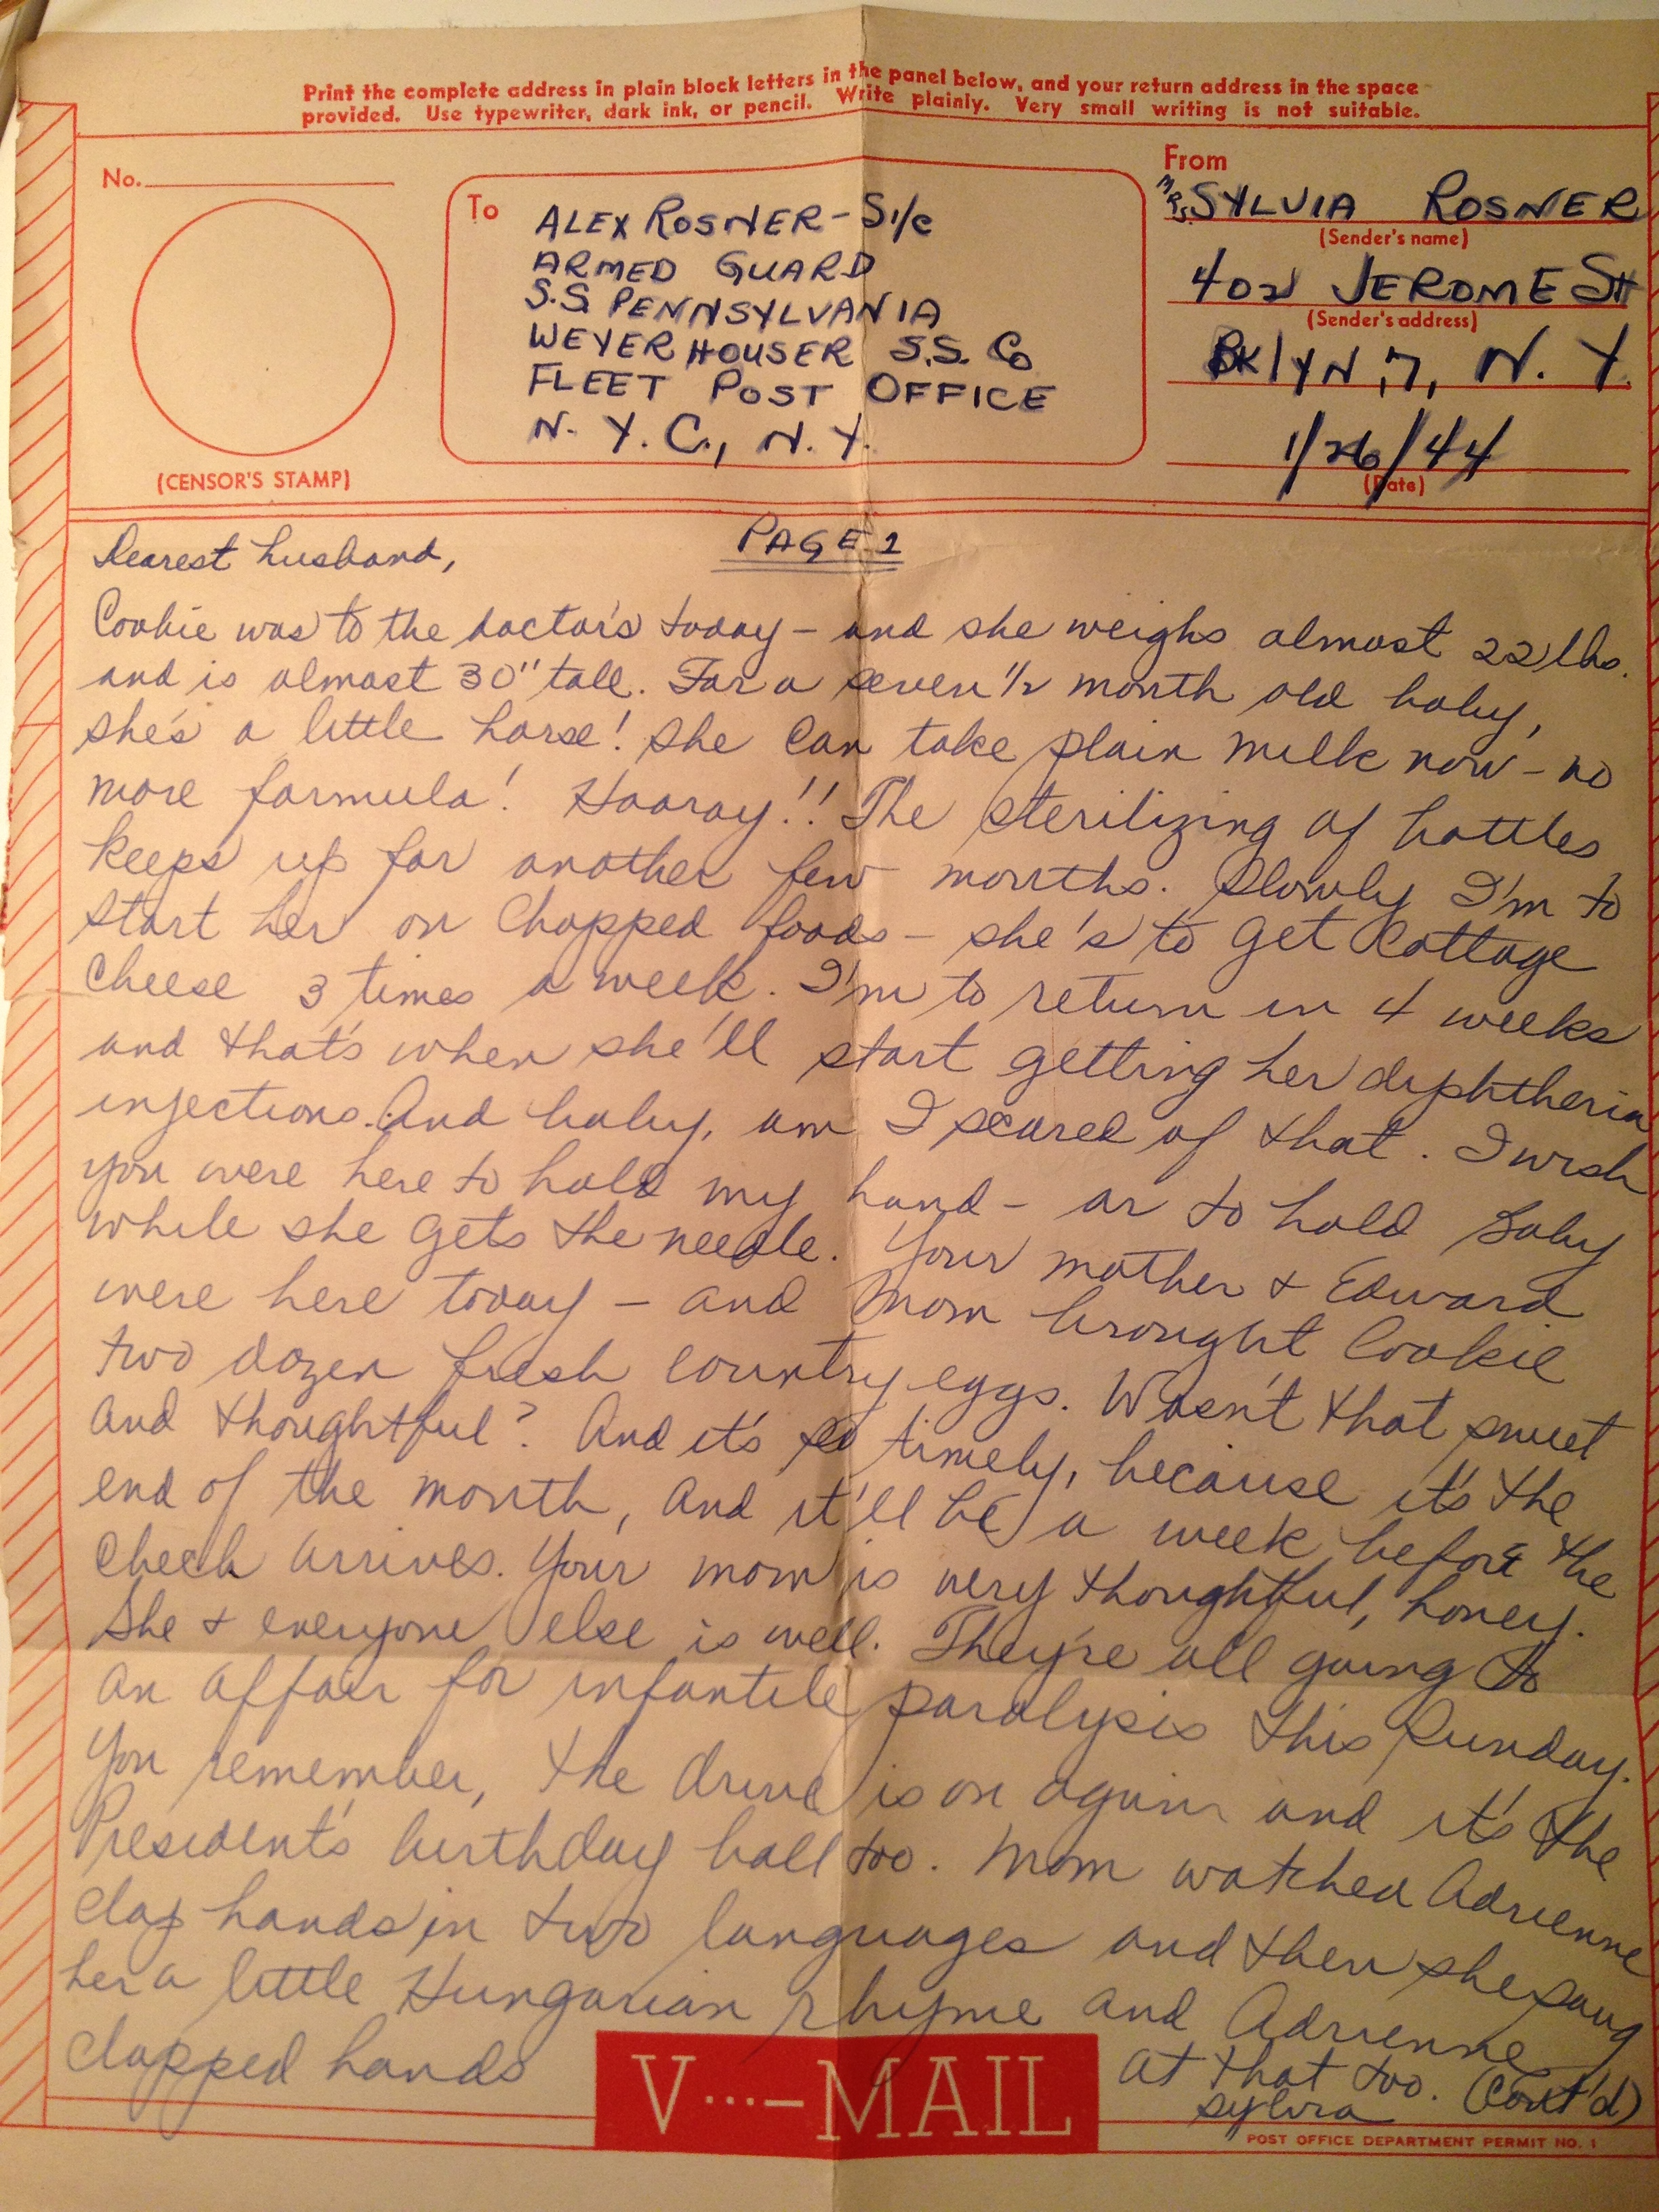 Print the complete address in plain block letters in the panel below, and your return address in the space
provided. Use typewriter, dark ink, or pencil. Write plainly. Very small writing is not suitable.
No.
(CENSOR'S STAMP)
To
ALEX ROSNER - S1/c
ARMED GUARD
S.S. PENNSYLVANIA
WEYERHOUSER S.S. Co
FLEET POST OFFICE
N.Y.C., N.Y.
From
MRS. SYLVIA ROSNER
(Sender's name)
402 JEROME St
(Sender's address)
BKlYN, 7, N.Y.
1/26/44
(Date)
PAGE 1
Dearest husband,
Cookie was to the doctor's today – and she weighs almost 22 lbs.
and is almost 30" tall. For a seven 1/2 month old baby,
she's a little horse! She can take plain milk now – no
more formula! Hooray!! The sterilizing of bottles
keeps up for another few months. Slowly I'm to
start her on chopped foods – she's to get cottage
cheese 3 times a week. I'm to return in 4 weeks
and that's when she'll start getting her diphtheria
injections. And baby, am I scared of that. I wish
you were here to hold my hand – or to hold baby
while she gets the needle. Your mother & Edward
were here today – and Mom brought Cookie
two dozen fresh country eggs. Wasn't that sweet
and thoughtful? And it's so timely, because it's the
end of the month, and it'll be a week before the
check arrives. Your mom is very thoughtful, honey.
She & everyone else is well. They're all going to
an affair for infantile paralysis this Sunday.
You remember, the drive is on again and it's the
President's birthday ball too. Mom watched Adrienne
clap hands in two languages and then she sang
her a little Hungarian rhyme and Adrienne
clapped hands at that too. (Cont'd)
Sylvia
V···–MAIL
POST OFFICE DEPARTMENT PERMIT NO. 1